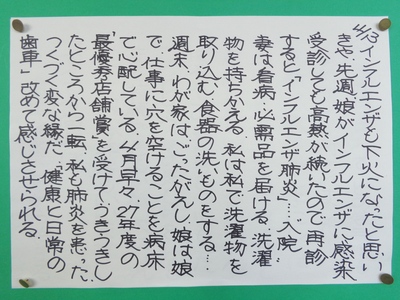 4/13 インフルエンザも下火になったと思い
きや、先週、娘がインフルエンザに感染
受診しても高熱が続いたので、再診
すると「インフルエンザ肺炎」…入院
妻は看病・必需品を届ける、洗濯
物を持ちかえる、私は私で洗濯物を
取り込む、食器の洗いものをする…
週末、わが家はごったがえし、娘は娘
で、仕事に穴を空けることを病床
で心配している。4月早々、27年度の
「最優秀店舗賞」を受けてうきうきし
たところから一転、私も肺炎を患った
つくづく変な縁だ。"健康と日常の
歯車"改めて感じさせられる。